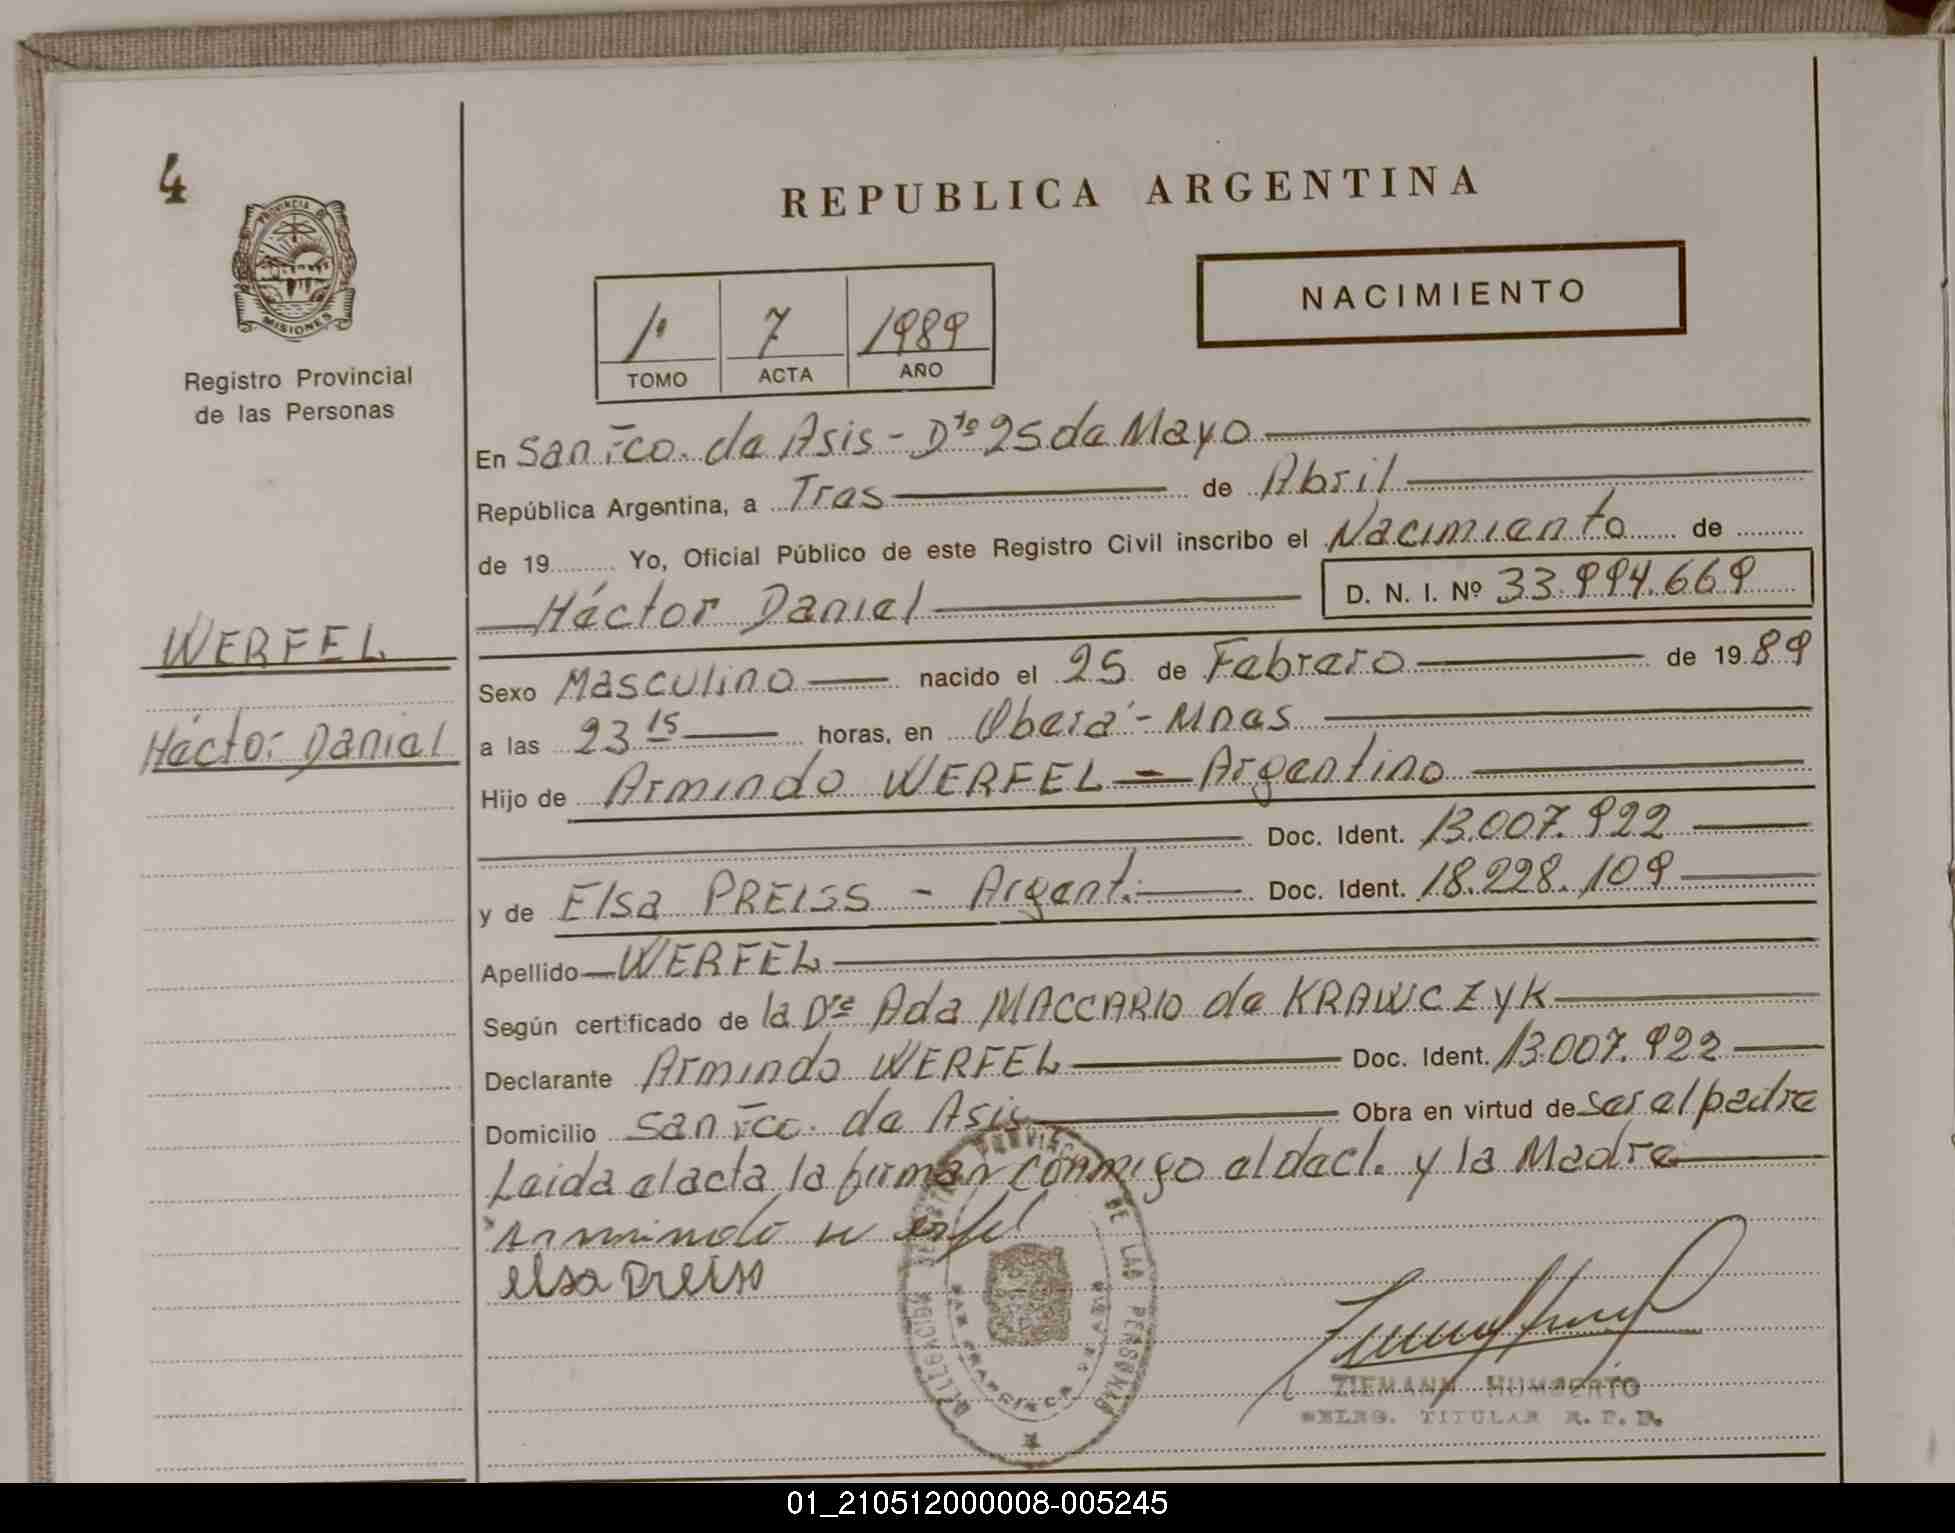 4
REPUBLICA ARGENTINA
PROVINCIA DE
MISIONES
NACIMIENTO
1º 7 1989
TOMO ACTA AÑO
Registro Provincial
de las Personas
En San Fco. de Asis - Dto 25 de Mayo
República Argentina, a Tres de Abril
de 19 Yo, Oficial Público de este Registro Civil inscribo el Nacimiento de
Héctor Daniel D. N. I. Nº 33.994.669
WERFEL
Héctor Daniel
Sexo Masculino nacido el 25 de Febrero de 1989
a las 23 15 horas, en Oberá - Mnes
Hijo de Armindo WERFEL - Argentino
Doc. Ident. 13.007.922
y de Elsa PREISS - Argent. Doc. Ident. 18.228.109
Apellido WERFEL
Según certificado de la Dra Ada MACCARIO de KRAWCZYK
Declarante Armindo WERFEL Doc. Ident. 13.007.922
Domicilio San Fco. de Asis Obra en virtud de ser el padre
Leida el acta la firman conmigo el decl. y la Madre
Armindo werfel
elsa Preiss
ZIEMANN HUMBERTO
DELEG. TITULAR R. P. P.
01_210512000008-005245